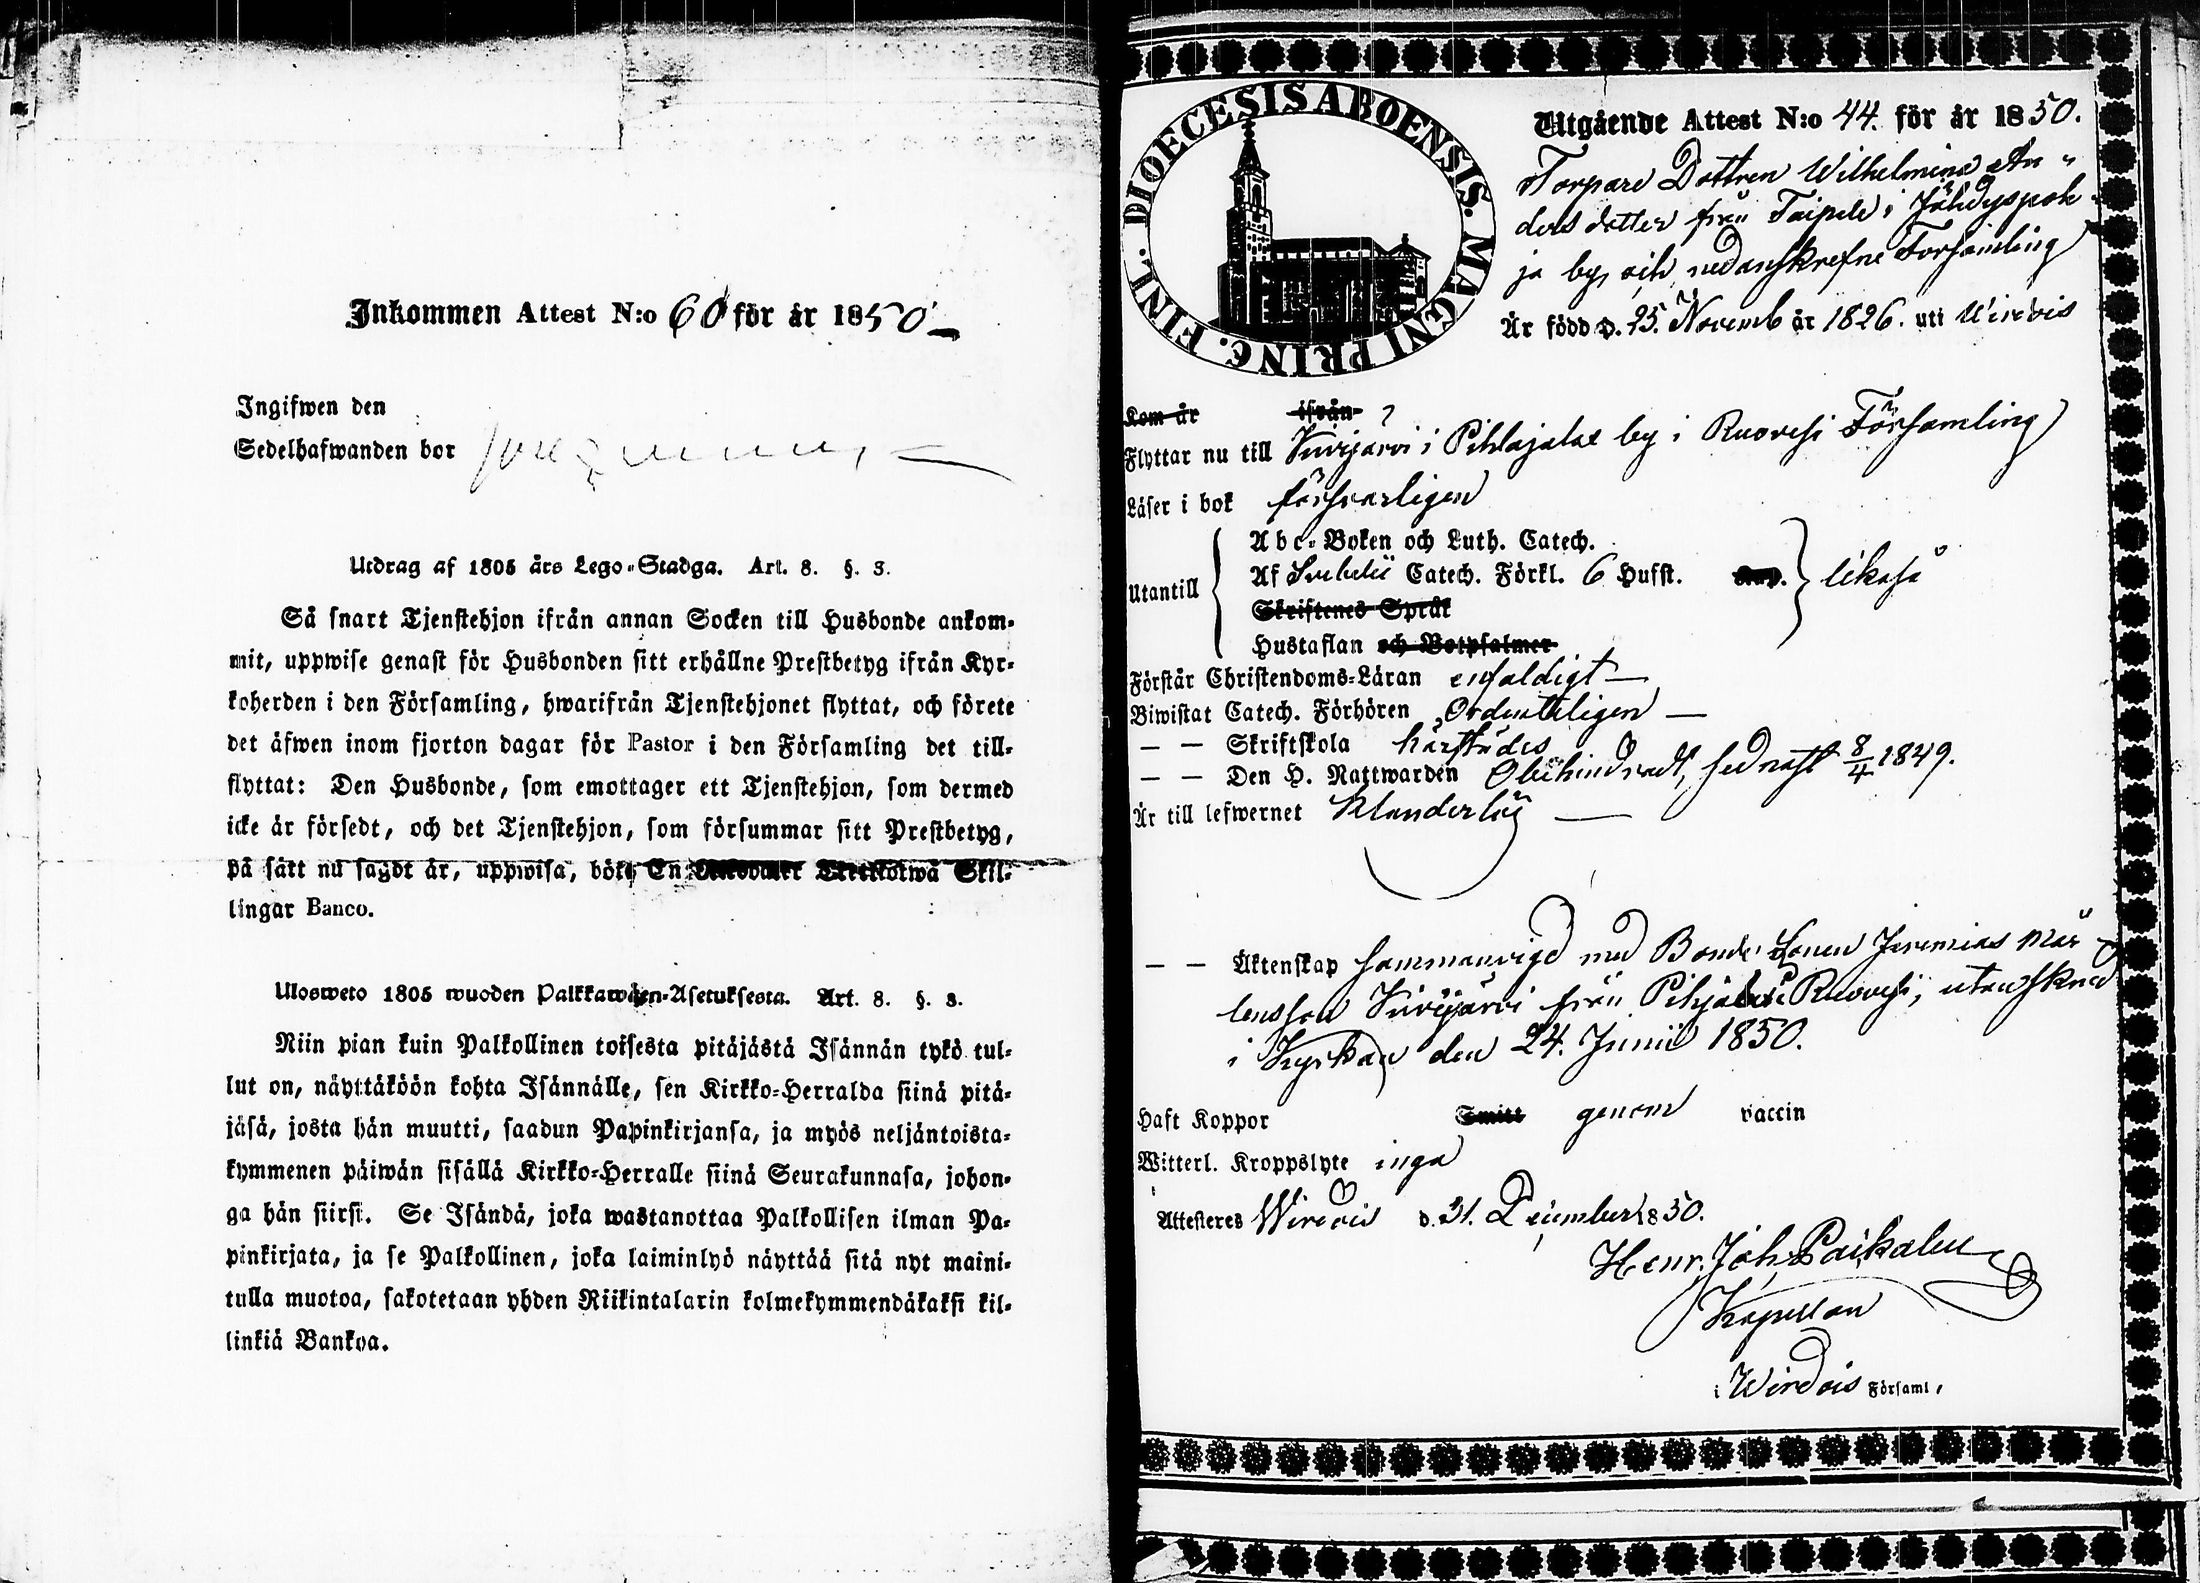 Inkommen Attest N:o 60 för år 1850
Ingifwen den
Sedelhafwanden bor
Utdrag af 1805 års Lego-Stadga. Art. 8. §. 3.
Så snart Tjenstehjon ifrån annan Socken till Husbonde ankom-
mit, uppwise genast för Husbonden sitt erhållne Prestbetyg ifrån Kyr-
koherden i den Församling, hwarifrån Tjenstehjonet flyttat, och förete
det äfwen inom fjorton dagar för Pastor i den Församling det till-
flyttat: Den Husbonde, som emottager ett Tjenstehjon, som dermed
icke är försedt, och det Tjenstehjon, som försummar sitt Prestbetyg,
på sätt nu sagdt är, uppwisa, böte En Riksdaler Trettiotwå Skil-
lingar Banco.
Ulosweto 1805 wuoden Palkkawäen-Asetuksesta. Art. 8. §. 3.
Niin pian kuin Palkollinen toisesta pitäjästä Isännän tykö tul-
lut on, näyttäköön kohta Isännälle, sen Kirkko-Herralda siinä pitä-
jäsä, josta hän muutti, saadun Papinkirjansa, ja myös neljäntoista-
kymmenen päiwän sisällä Kirkko-Herralle siinä Seurakunnasa, johon-
ga hän siirsi. Se Isändä, joka wastanottaa Palkollisen ilman Pa-
pinkirjata, ja se Palkollinen, joka laiminlyö näyttää sitä nyt maini-
tulla muotoa, sakotetaan yhden Riikintalarin kolmekymmendäkaksi kil-
linkiä Bankoa.
DIOECESIS ABOENSIS. MAGNI PRINC. FINL.
Utgående Attest N:o 44. för år 1850.
Torpare Dottren Wilhelmina An-
ders dotter från Taipele i Jähdyspoh
ja by, och nedanskrefne Forsamling
Är född d. 25. Novemb år 1826. uti Wirdois
Kom år ifrån ?
Flyttar nu till Kurjärvi i Pihlajalax by i Ruovesi Församling
Läser i bok försvarligen
Utantill
Abc-Boken och Luth. Catech.
Af Svebelii Catech. Förkl. 6 Hufst. Kap. likaså
Skriftenes Språk
Hustaflan och Botpsalmer
Förstår Christendoms-Läran enfaldigt
Biwistat Catech. Förhören Ordenteligen
— — Skriftskola härstädes
— — Den H. Nattwarden Obehindradt, sednast 8/4 1849.
Är till lefwernet Klanderlös
— — Äktenskap sammanvigd med Bonde Sonen Jeremias Mår
tensson Kurjärvi från Pihjalax i Ruovesi, utanskred
i Kyrkan den 24. Junii 1850.
Haft Koppor Smitt genom vaccin
Witterl. Kroppslyte inga
Attesteres Wirdois d. 31. December 1850.
Henr. Joh. Paikalen
Kapellan
i Wirdois Församl.